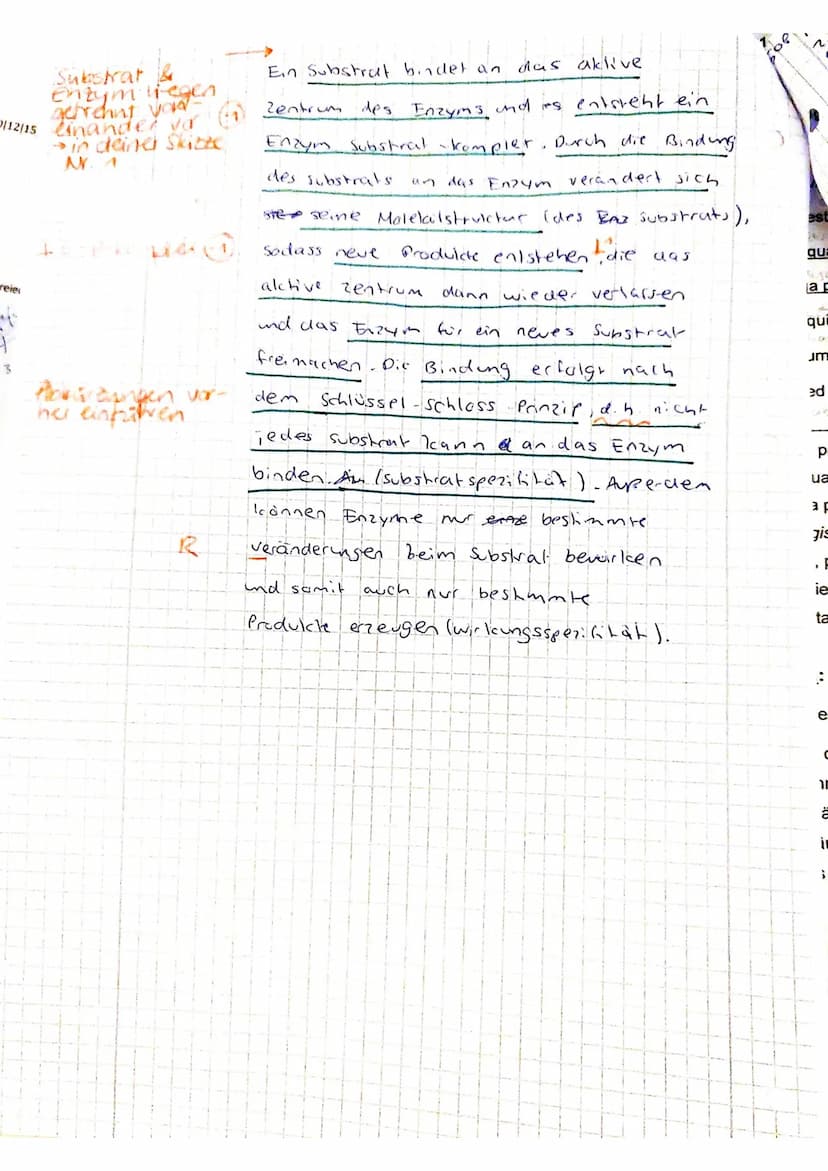 Substrat &
Enzym liegen
getrennt von-
einander vor
→ in deiner Skizze
Nr. 1
(-1)
Ein Substrat bindet an das aktive
Zentrum des Enzyms und es entsteht ein
Enzym Substrat-komplex. Durch die Bindung
des substrats an das Enzym verändert sich
seine Molekülstruktur (des Substrats),
sodass neue Produkte entstehen, die das
aktive Zentrum dann wieder verlassen
und das Enzym für ein neues Substrat
freimachen. Die Bindung erfolgt nach
dem Schlüssel-Schloss Prinzip, d.h nicht
jedes substrat kann an das Enzym
binden. (Substratspezifität). Außerdem
können Enzyme nur bestimmte
Veränderungen beim Substrat bewirken
und somit auch nur bestimmte
Produkte erzeugen (Wirkungsspezifität).
Abkürzungen vor-
her einführen
R
0/12/15
reie
3
est
qua
qui
um
ed
p
ua
a p
gis
ie
ta
:
e